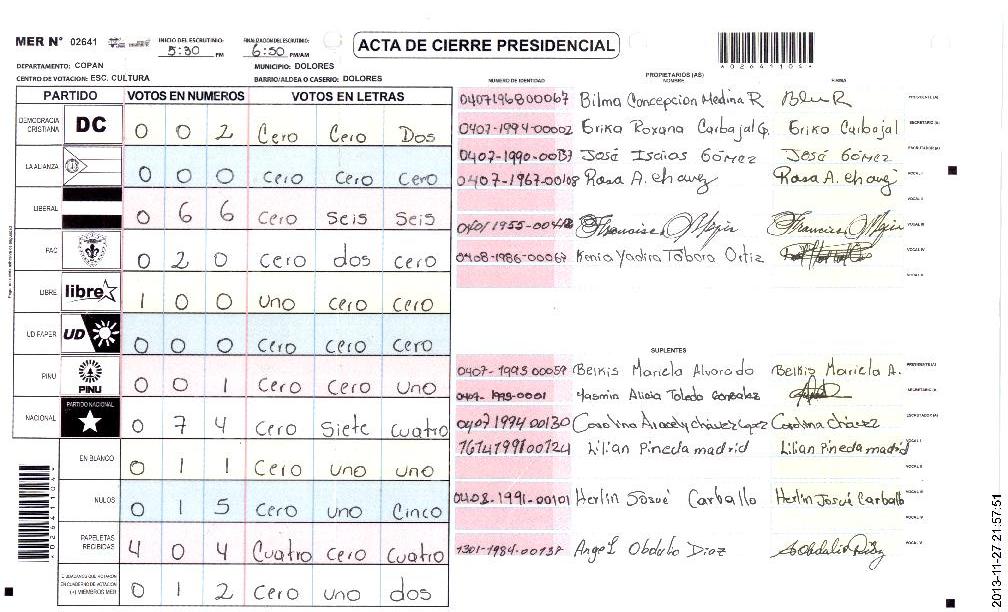 MER N° 02641 INICIO DEL ESCRUTINIO: 5:30 PM FINALIZACION DEL ESCRUTINIO: 6:50 PM/AM ACTA DE CIERRE PRESIDENCIAL
DEPARTAMENTO: COPAN MUNICIPIO: DOLORES
CENTRO DE VOTACION: ESC. CULTURA BARRIO/ALDEA O CASERIO: DOLORES
*02641104*
PARTIDO VOTOS EN NUMEROS VOTOS EN LETRAS
DEMOCRACIA CRISTIANA DC 0 0 2 Cero Cero Dos
LA ALIANZA 0 0 0 Cero Cero Cero
LIBERAL 0 6 6 Cero Seis Seis
PAC 0 2 0 Cero dos cero
LIBRE libre 1 0 0 uno cero cero
UD FAPER UD 0 0 0 Cero cero cero
PINU PINU 0 0 1 Cero Cero uno
NACIONAL PARTIDO NACIONAL 0 7 4 Cero Siete cuatro
EN BLANCO 0 1 1 Cero uno uno
NULOS 0 1 5 Cero uno Cinco
PAPELETAS RECIBIDAS 4 0 4 Cuatro cero cuatro
CIUDADANOS QUE VOTARON EN CUADERNO DE VOTACION (+) MIEMBROS MER 0 1 2 Cero uno dos
*02641104*
PROPIETARIOS (AS)
NUMERO DE IDENTIDAD NOMBRE FIRMA
0407196800067 Bilma Concepcion Medina R PRESIDENTE (A)
0407-1994-00002 Erika Roxana Carbajal G. Erika Carbajal SECRETARIO (A)
0407-1990-00137 José Isaias Gómez José Gómez ESCRUTADOR (A)
0407-1967-00108 Rosa A. chavez Rosa A. chavez VOCAL I
VOCAL II
Francisco Mejia Francisco Mejia VOCAL III
0408-1986-00067 Kenia Yadira Tabora Ortiz VOCAL IV
VOCAL V
SUPLENTES
0407-1993 00059 Belkis Mariela Alvarado Belkis Mariela A. PRESIDENTE (A)
0407-1995-0001 Yasmin Alicia Toledo Gonzalez SECRETARIO (A)
0407 1994 00130 Carolina Aracely chávez Lopez Carolina chávez ESCRUTADOR (A)
1614199100724 Lilian Pineda madrid Lilian Pineda madrid VOCAL I
VOCAL II
0408-1991-00101 Herlin Josué Carballo Herlin Josué Carballo VOCAL III
VOCAL IV
1301-1984-00137 Angel Obdulio Diaz Obdulio Diaz VOCAL V
2013-11-27 21:57:51